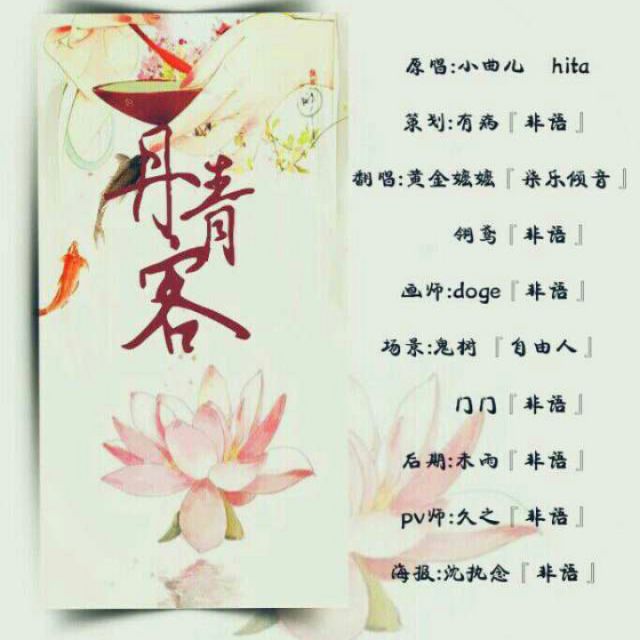 丹青客
原唱:小曲儿 hita
策划:有病『非语』
翻唱:黄金嬷嬷『柒乐倾音』
翎鸢『非语』
画师:doge『非语』
场景:鬼树『自由人』
门门『非语』
后期:未雨『非语』
pv师:久之『非语』
海报:沈执念『非语』